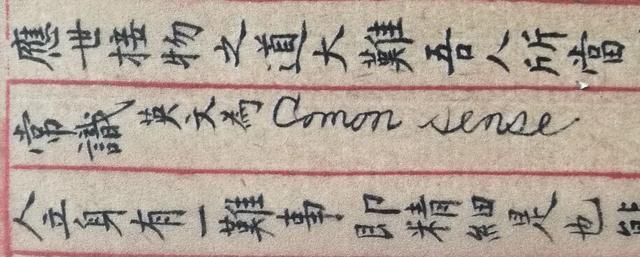 應世接物之道大難吾人所當
常識英文為Comon sense
人立身有一難事即精細是也